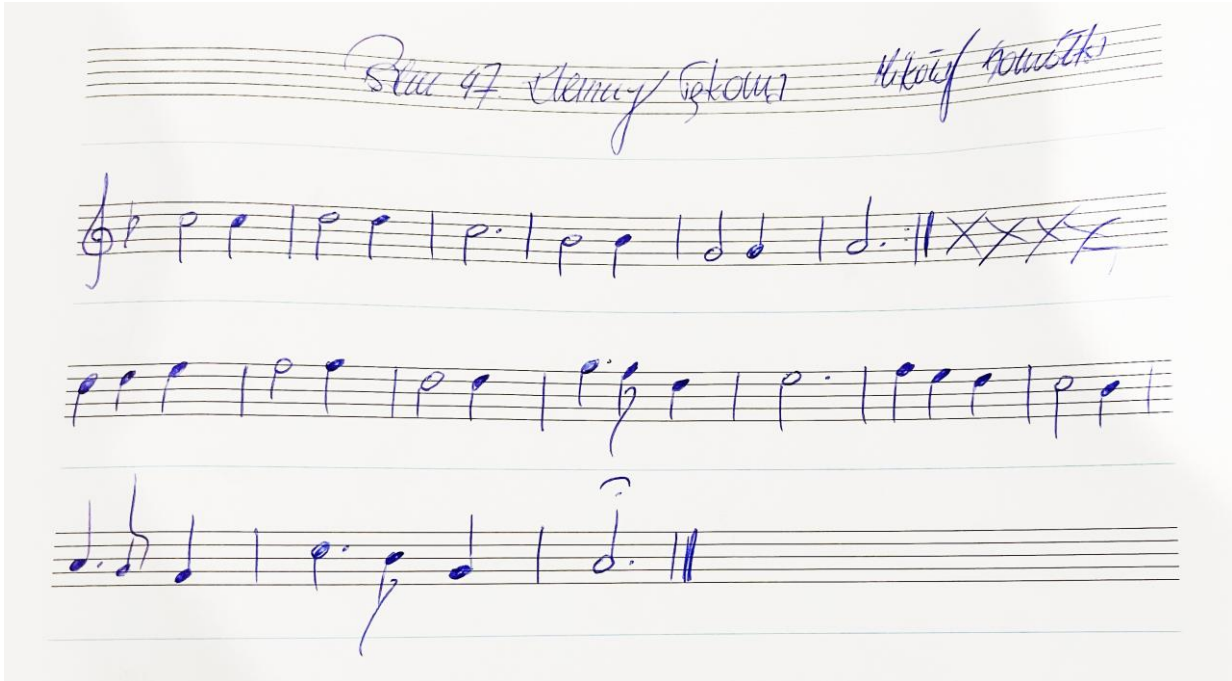 Psalm 47. Kleszczmy rękoma Mikołaj Gomółka